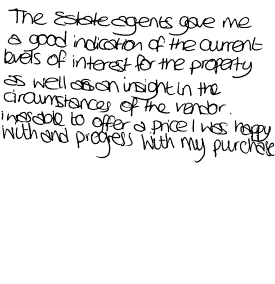 The Estate agents gave me
a good indication of the current
levels of interest for the property
as well as an insight in the
circumstances of the vendor.
I was able to offer a price I was happy
with and progress with my purchase